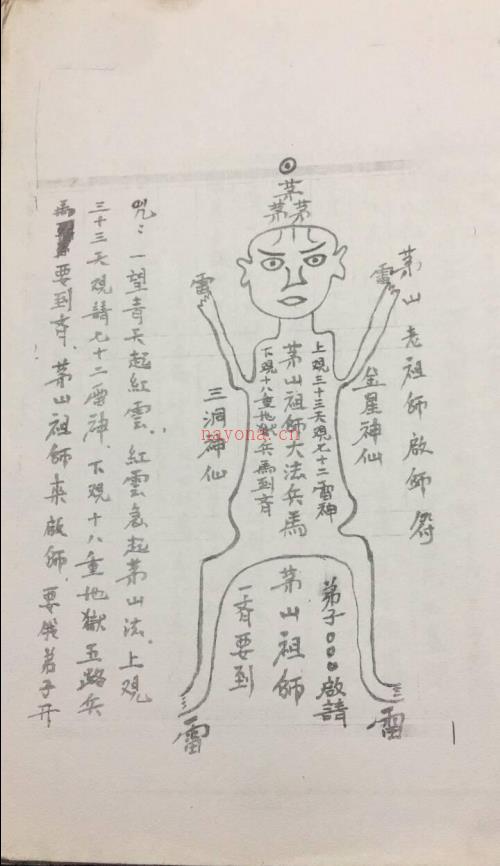 茅山老祖師啟師符
茅
茅茅
雷
雷
金星神仙
上覌三十三天覌七十二雷神
茅山祖師大法兵馬
下覌十八重地獄兵馬到齐
三洞神仙
弟子○○○啟請
茅山祖師
一齐要到
雷
雷
咒：一望青天起紅雲，紅雲起茅山法，上覌
三十三天覌請七十二雷神，下覌十八重地獄五路兵
馬要到齐，茅山祖師来啟師，要弟子开
nayona.cn